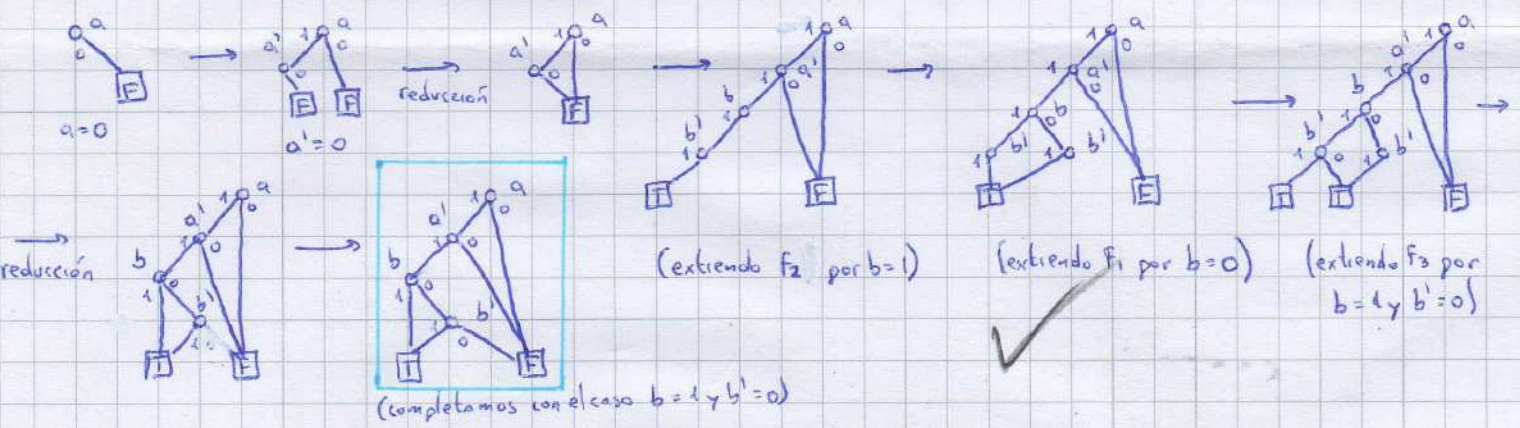 a 0 F
a=0
1 a 0 a' 0 F F
a'=0
reducción
1 a 0 a' 0 F
1 a 0 1 a' 0 b 1 b' 1 T F
(extiendo F2 por b=1)
a 1 0 1 a' 0 1 b 0 1 b' 1 b' T F
(extiendo F1 por b=0)
a 1 0 a' 1 0 b 1 0 b' 1 0 1 b' T T F
(extiendo F3 por
b=1 y b'=0)
reducción
1 a 0 a' 1 0 b 1 0 b' 1 T F
1 a 0 a' 1 0 b 1 0 b' 1 0 T F
(completamos con el caso b=1 y b'=0)